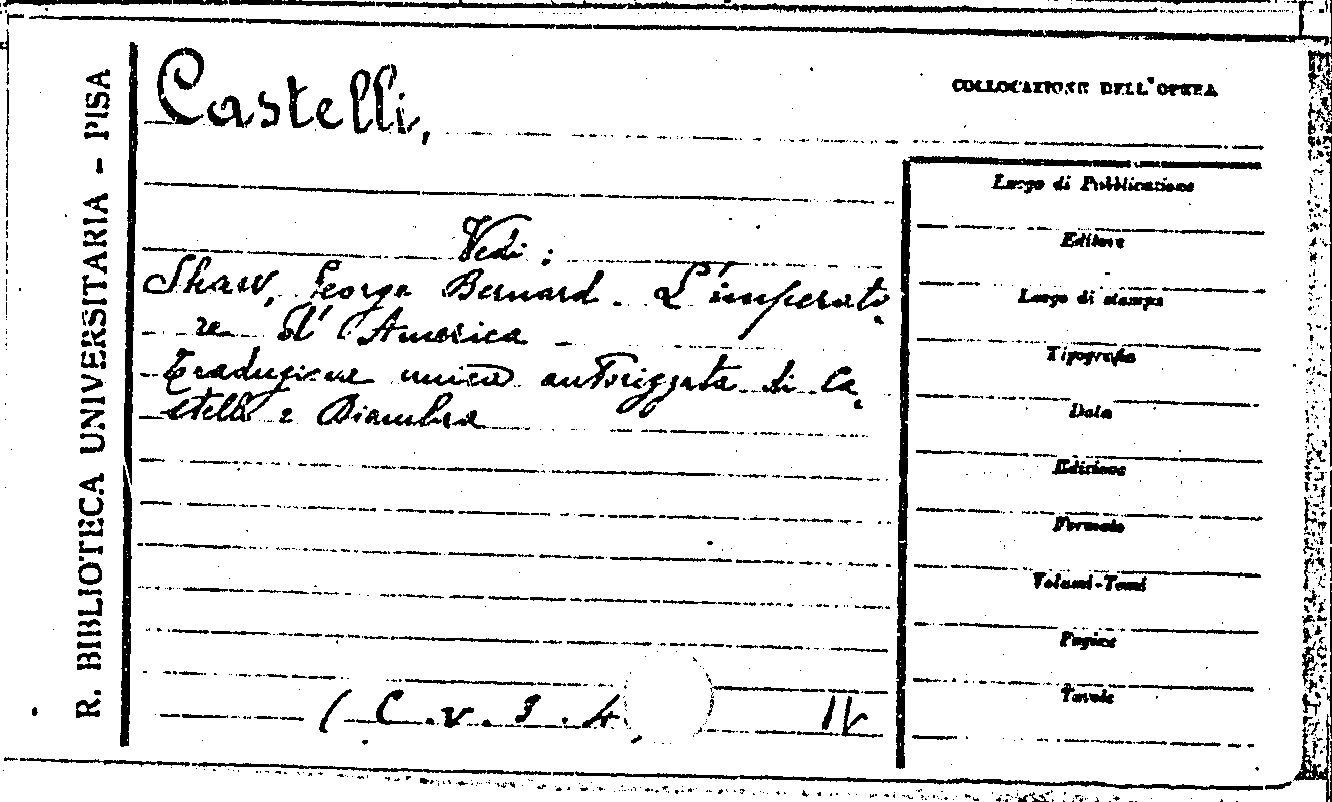 R. BIBLIOTECA UNIVERSITARIA - PISA
Castelli,
COLLOCAZIONE DELL'OPERA
Vedi:
Shaw, George Bernard. L'imperato-
re d'America
Traduzione unica autorizzata di Ca-
stelli e Diambra
(C.v.3.4
IV
Luogo di Pubblicazione
Editore
Luogo di stampa
Tipografia
Data
Edizione
Formato
Volumi-Tomi
Pagine
Tavole